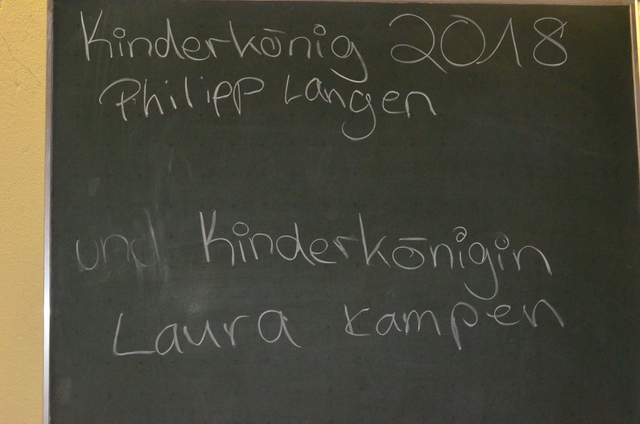 Kinderkönig 2018
Philipp Langen
und Kinderkönigin
Laura Kampen